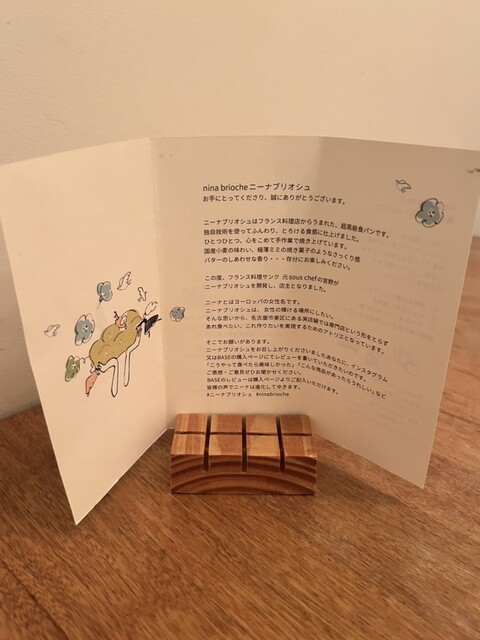 nina brioche ニーナブリオシュ
お手にとってくださり、誠にありがとうございます。
ニーナブリオシュはフランス料理店からうまれた、超高級食パンです。
独自技術を使ってふんわり、とろける食感に仕上げました。
ひとつひとつ、心をこめて手作業で焼き上げています。
国産小麦の味わい、極薄ミミの焼き菓子のようなさっくり感
バターのしあわせな香り・・・存分にお楽しみください。
この度、フランス料理サンク 元sous chefの宮野が
ニーナブリオシュを開発し、店主となりました。
ニーナとはヨーロッパの女性名です。
ニーナブリオシュは、女性の輝ける場所にしたい。
そんな思いから、名古屋市東区にある実店舗では専門店という形をとらず
あれ食べたい、これ作りたいを実現するためのアトリエとなっています。
そこでお願いがあります。
ニーナブリオシュをお召し上がりくださいましたあなたに、インスタグラム
又はBASEの購入ページにてレビューを書いていただきたいのです。
「こうやって食べたら美味しかった」「こんな商品があったらうれしい」など
ご感想・ご意見ぜひお聞かせください。
BASEのレビューは購入ページよりご記入いただけます。
皆様の声でニーナは進化してゆきます。
#ニーナブリオシュ #ninabrioche